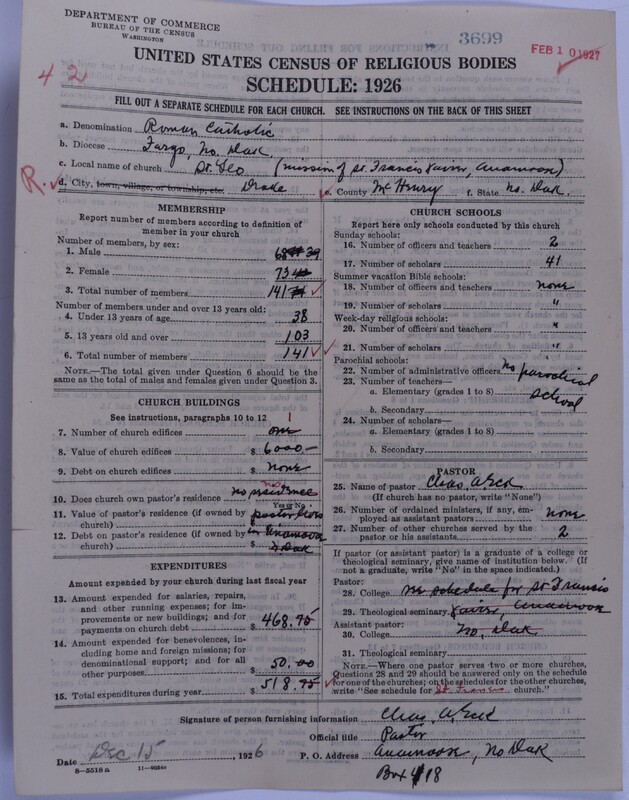 DEPARTMENT OF COMMERCE
BUREAU OF THE CENSUS
WASHINGTON
3699
FEB 10 1927
4 2
UNITED STATES CENSUS OF RELIGIOUS BODIES
SCHEDULE: 1926
FILL OUT A SEPARATE SCHEDULE FOR EACH CHURCH. SEE INSTRUCTIONS ON THE BACK OF THIS SHEET
a. Denomination Roman Catholic
b. Diocese Fargo, No. Dak.
c. Local name of church St. Leo (mission of St. Francis Xavier, Anamoose)
R. d. City, town, village, or township, etc. Drake e. County McHenry f. State No. Dak.
MEMBERSHIP
Report number of members according to definition of member in your church
Number of members, by sex:
1. Male 68
2. Female 73
3. Total number of members 141
Number of members under and over 13 years old:
4. Under 13 years of age 38
5. 13 years old and over 103
6. Total number of members 141
NOTE.—The total given under Question 6 should be the same as the total of males and females given under Question 3.
CHURCH BUILDINGS
See instructions, paragraphs 10 to 12 1
7. Number of church edifices one
8. Value of church edifices $ 6000.—
9. Debt on church edifices $ none
10. Does church own pastor's residence no residence no
Yes or No
11. Value of pastor's residence (if owned by church) pastor lives
12. Debt on pastor's residence (if owned by church) in Anamoose
$ N Dak
EXPENDITURES
Amount expended by your church during last fiscal year
13. Amount expended for salaries, repairs, and other running expenses; for improvements or new buildings; and for payments on church debt $ 468.75
14. Amount expended for benevolences, including home and foreign missions; for denominational support; and for all other purposes $ 50.00
15. Total expenditures during year $ 518.75
CHURCH SCHOOLS
Report here only schools conducted by this church
Sunday schools:
16. Number of officers and teachers 2
17. Number of scholars 41
Summer vacation Bible schools:
18. Number of officers and teachers none
19. Number of scholars "
Week-day religious schools:
20. Number of officers and teachers "
21. Number of scholars "
Parochial schools:
22. Number of administrative officers no parochial
23. Number of teachers—
a. Elementary (grades 1 to 8) school
b. Secondary
24. Number of scholars—
a. Elementary (grades 1 to 8)
b. Secondary
PASTOR
25. Name of pastor Chas. A.
(If church has no pastor, write "None")
26. Number of ordained ministers, if any, employed as assistant pastors none
27. Number of other churches served by the pastor or his assistants 2
If pastor (or assistant pastor) is a graduate of a college or theological seminary, give name of institution below. (If not a graduate, write "No" in the space indicated.)
Pastor:
28. College schedule for St Francis
29. Theological seminary Xavier, Anamoose
Assistant pastor:
30. College No. Dak
31. Theological seminary
NOTE.—Where one pastor serves two or more churches, Questions 28 and 29 should be answered only on the schedule for one of the churches; on the schedules for the other churches, write "See schedule for St Francis church."
Signature of person furnishing information Chas. A.
Official title Pastor
Date Dec 15, 1926 P. O. Address Anamoose, No Dak
Box 418
8—5518 a